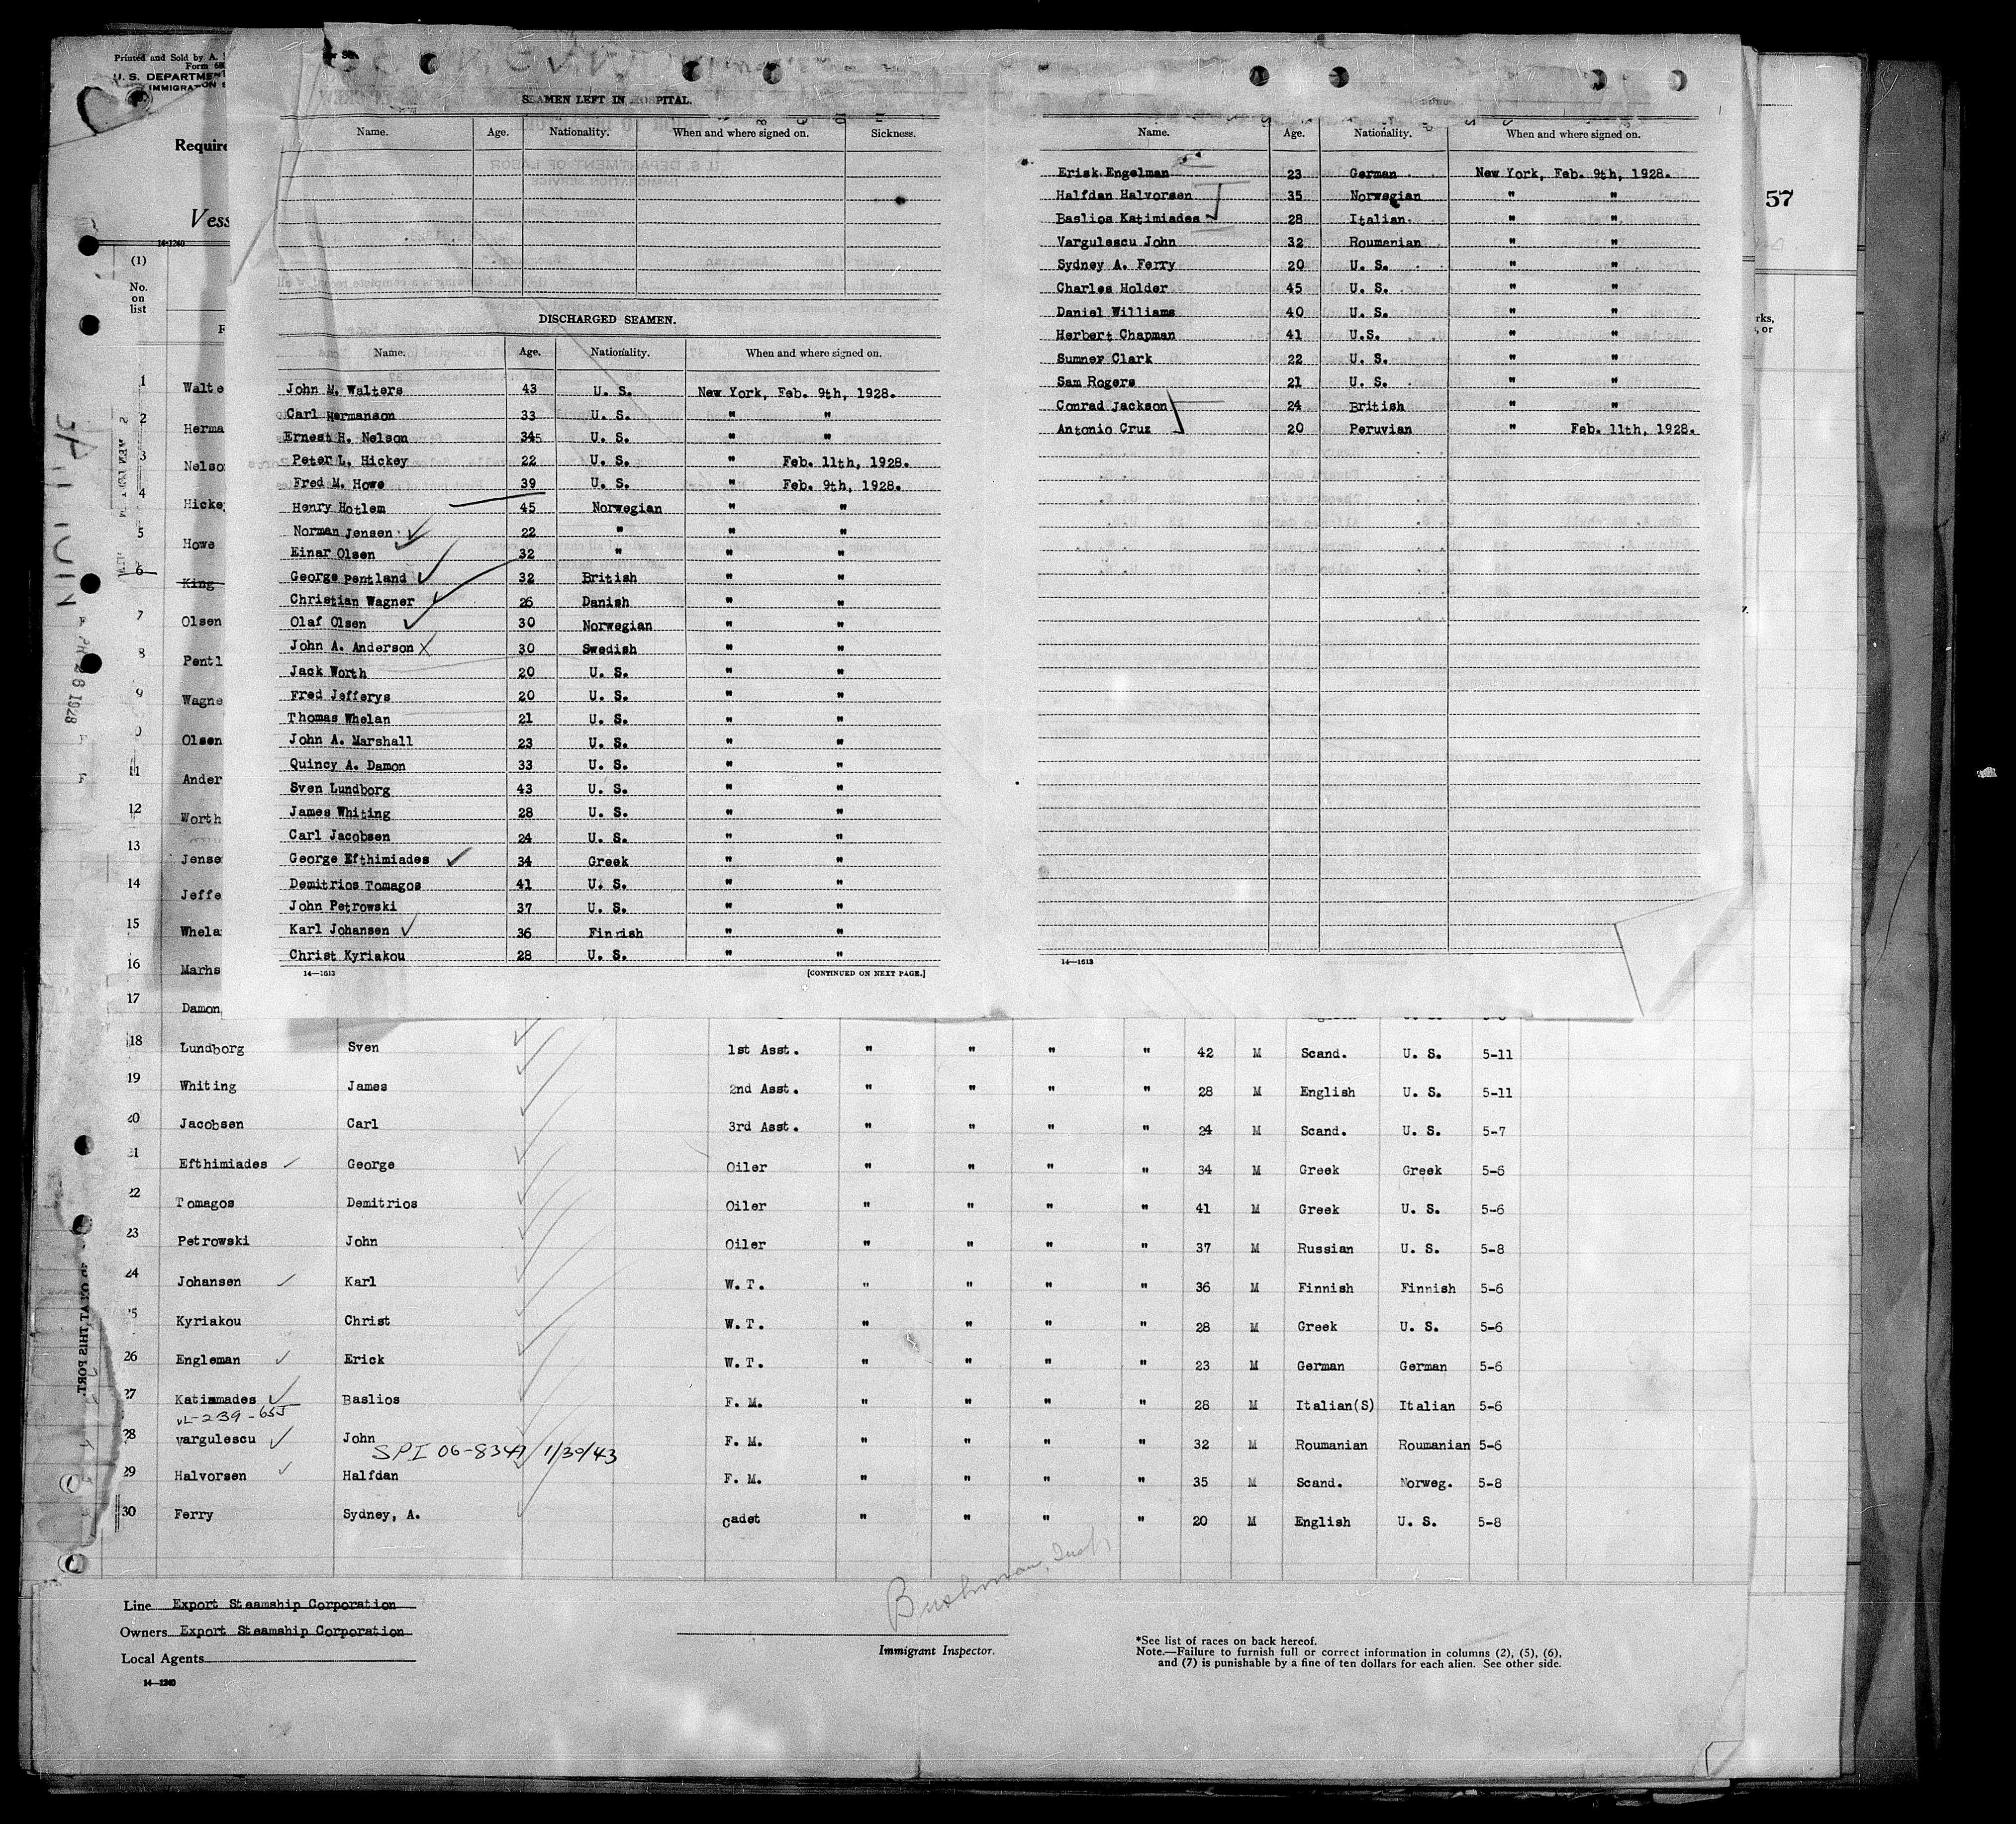 Printed and Sold by A.
Form 68
U. S. DEPARTME
IMMIGRATION S
Require
Vess
14-1240
(1)
No.
on
list
F
SEAMEN LEFT IN HOSPITAL.
Name. Age. Nationality. When and where signed on. Sickness.
DISCHARGED SEAMEN.
Name. Age. Nationality. When and where signed on.
John M. Walters 43 U. S. New York, Feb. 9th, 1928.
Carl Hermanson 33 U. S. " "
Ernest H. Nelson 345 U. S. " "
Peter L. Hickey 22 U. S. " Feb. 11th, 1928.
Fred M. Howe 39 U. S. " Feb. 9th, 1928.
Henry Hotlem 45 Norwegian " "
Norman Jensen 22 " " "
Einar Olsen 32 " " "
George Pentland 32 British " "
Christian Wagner 26 Danish " "
Olaf Olsen 30 Norwegian " "
John A. Anderson X 30 Swedish " "
Jack Worth 20 U. S. " "
Fred Jefferys 20 U. S. " "
Thomas Whelan 21 U. S. " "
John A. Marshall 23 U. S. " "
Quincy A. Damon 33 U. S. " "
Sven Lundborg 43 U. S. " "
James Whiting 28 U. S. " "
Carl Jacobsen 24 U. S. " "
George Efthimiades 34 Greek " "
Demitrios Tomagos 41 U. S. " "
John Petrowski 37 U. S. " "
Karl Johansen 36 Finnish " "
Christ Kyriakou 28 U. S. " "
14—1613 [CONTINUED ON NEXT PAGE.]
Name. Age. Nationality. When and where signed on.
Erisk Engelman 23 German New York, Feb. 9th, 1928.
Halfdan Halvorsen 35 Norwegian " "
Baslios Katimiades 28 Italian " "
Vargulescu John 32 Roumanian " "
Sydney A. Ferry 20 U. S. " "
Charles Holder 45 U. S. " "
Daniel Williams 40 U. S. " "
Herbert Chapman 41 U.S. " "
Sumner Clark 22 U. S. " "
Sam Rogers 21 U. S. " "
Conrad Jackson 24 British " "
Antonio Cruz 20 Peruvian " Feb. 11th, 1928.
14—1613
57
rks,
, or
1 Walte
2 Herma
3 Nelson
4 Hickey
5 Howe
6 King
7 Olsen
8 Pentl
9 Wagne
0 Olsen
11 Ander
12 Worth
13 Jense
14 Jeffe
15 Whela
16 Marhs
17 Damon
18 Lundborg Sven 1st Asst. " " " " 42 M Scand. U. S. 5-11
19 Whiting James 2nd Asst. " " " " 28 M English U. S. 5-11
20 Jacobsen Carl 3rd Asst. " " " " 24 M Scand. U. S. 5-7
21 Efthimiades George Oiler " " " " 34 M Greek Greek 5-6
22 Tomagos Demitrios Oiler " " " " 41 M Greek U. S. 5-6
23 Petrowski John Oiler " " " " 37 M Russian U. S. 5-8
24 Johansen Karl W.T. " " " " 36 M Finnish Finnish 5-6
25 Kyriakou Christ W.T. " " " " 28 M Greek U. S. 5-6
26 Engleman Erick W.T. " " " " 23 M German German 5-6
27 Katimmades Baslios F. M. " " " " 28 M Italian(S) Italian 5-6
VL-239-65J
28 Vargulescu John F. M. " " " " 32 M Roumanian Roumanian 5-6
SPI 06-8349 1/30/43
29 Halvorsen Halfdan F. M. " " " " 35 M Scand. Norweg. 5-8
30 Ferry Sydney, A. Cadet " " " " 20 M English U. S. 5-8
Bushman, Insp.
Line Export Steamship Corporation
Owners Export Steamship Corporation
Local Agents
14—1240
Immigrant Inspector.
*See list of races on back hereof.
Note.—Failure to furnish full or correct information in columns (2), (5), (6),
and (7) is punishable by a fine of ten dollars for each alien. See other side.